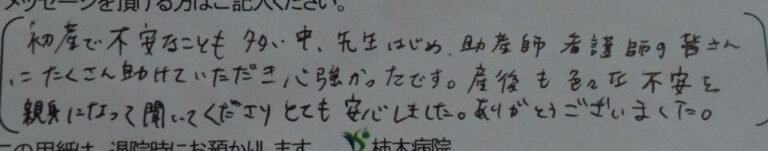 メッセージを頂ける方はご記入ください。
初産で不安なことも多い中、先生はじめ、助産師 看護師の皆さん
にたくさん助けていただき心強かったです。産後も色々な不安を
親身になって聞いてくださりとても安心しました。ありがとうございました。
この用紙は、退院時にお預かりします。 柿本病院